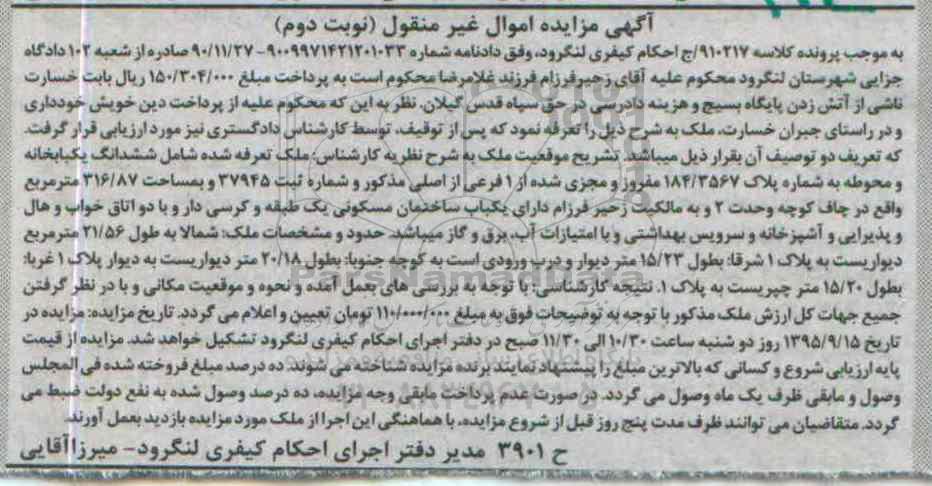 آگهی مزایده اموال غیر منقول (نوبت دوم)
به موجب پرونده کلاسه ۹۱۰۲۱۷/ج احکام کیفری لنگرود، وفق دادنامه شماره ۹۰۰۹۹۷۱۴۲۱۲۰۱۰۳۳- ۹۰/۱۱/۲۷ صادره از شعبه ۱۰۲ دادگاه
جزایی شهرستان لنگرود محکوم علیه آقای زحیرفرزام فرزند غلامرضا محکوم است به پرداخت مبلغ ۱۵۰/۳۰۴/۰۰۰ ریال بابت خسارت
ناشی از آتش زدن پایگاه بسیج و هزینه دادرسی در حق سپاه قدس گیلان. نظر به این که محکوم علیه از پرداخت دین خویش خودداری
و در راستای جبران خسارت، ملک به شرح ذیل را تعرفه نمود که پس از توقیف، توسط کارشناس دادگستری نیز مورد ارزیابی قرار گرفت.
که تعریف دو توصیف آن بقرار ذیل میباشد. تشریح موقعیت ملک به شرح نظریه کارشناس: ملک تعرفه شده شامل ششدانگ یکبابخانه
و محوطه به شماره پلاک ۱۸۴/۳۵۶۷ مفروز و مجزی شده از ۱ فرعی از اصلی مذکور و شماره ثبت ۳۷۹۴۵ و بمساحت ۳۱۶/۸۷ مترمربع
واقع در چاف کوچه وحدت ۲ و به مالکیت زحیر فرزام دارای یکباب ساختمان مسکونی یک طبقه و کرسی دار و با دو اتاق خواب و هال
و پذیرایی و آشپزخانه و سرویس بهداشتی و با امتیازات آب، برق و گاز میباشد. حدود و مشخصات ملک: شمالا به طول ۲۱/۵۶ مترمربع
دیواریست به پلاک ۱ شرقا: بطول ۱۵/۲۳ متر دیوار و درب ورودی است به کوچه جنوبا: بطول ۲۰/۱۸ متر دیواریست به دیوار پلاک ۱ غربا:
بطول ۱۵/۲۰ متر چپریست به پلاک ۱. نتیجه کارشناسی: با توجه به بررسی های بعمل آمده و نحوه و موقعیت مکانی و با در نظر گرفتن
جمیع جهات کل ارزش ملک مذکور با توجه به توضیحات فوق به مبلغ ۱۱۰/۰۰۰/۰۰۰ تومان تعیین و اعلام می گردد. تاریخ مزایده: مزایده در
تاریخ ۱۳۹۵/۹/۱۵ روز دو شنبه ساعت ۱۰/۳۰ الی ۱۱/۳۰ صبح در دفتر اجرای احکام کیفری لنگرود تشکیل خواهد شد. مزایده از قیمت
پایه ارزیابی شروع و کسانی که بالاترین مبلغ را پیشنهاد نمایند برنده مزایده شناخته می شوند. ده درصد مبلغ فروخته شده فی المجلس
وصول و مابقی ظرف یک ماه وصول می گردد. در صورت عدم پرداخت مابقی وجه مزایده، ده درصد وصول شده به نفع دولت ضبط می
گردد. متقاضیان می توانند ظرف مدت پنج روز قبل از شروع مزایده، با هماهنگی این اجرا از ملک مورد مزایده بازدید بعمل آورند.
ح ۳۹۰۱ مدیر دفتر اجرای احکام کیفری لنگرود- میرزاآقایی
ParsNamadData